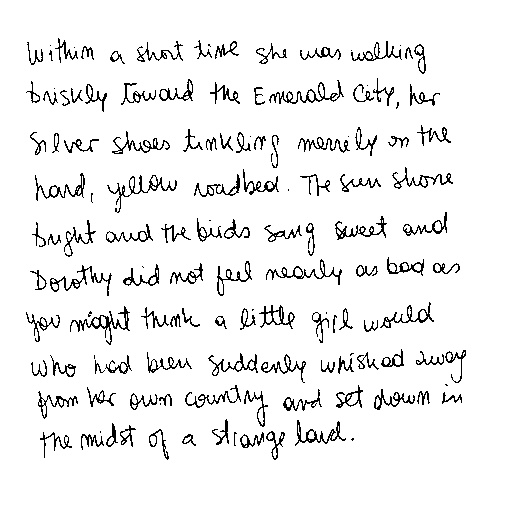 Within a short time she was walking
briskly toward the Emerald City, her
Silver Shoes tinkling merrily on the
hard, yellow roadbed. The sun shone
bright and the birds sang sweet and
Dorothy did not feel nearly as bad as
you might think a little girl would
who had been suddenly whisked away
from her own country and set down in
the midst of a strange land.